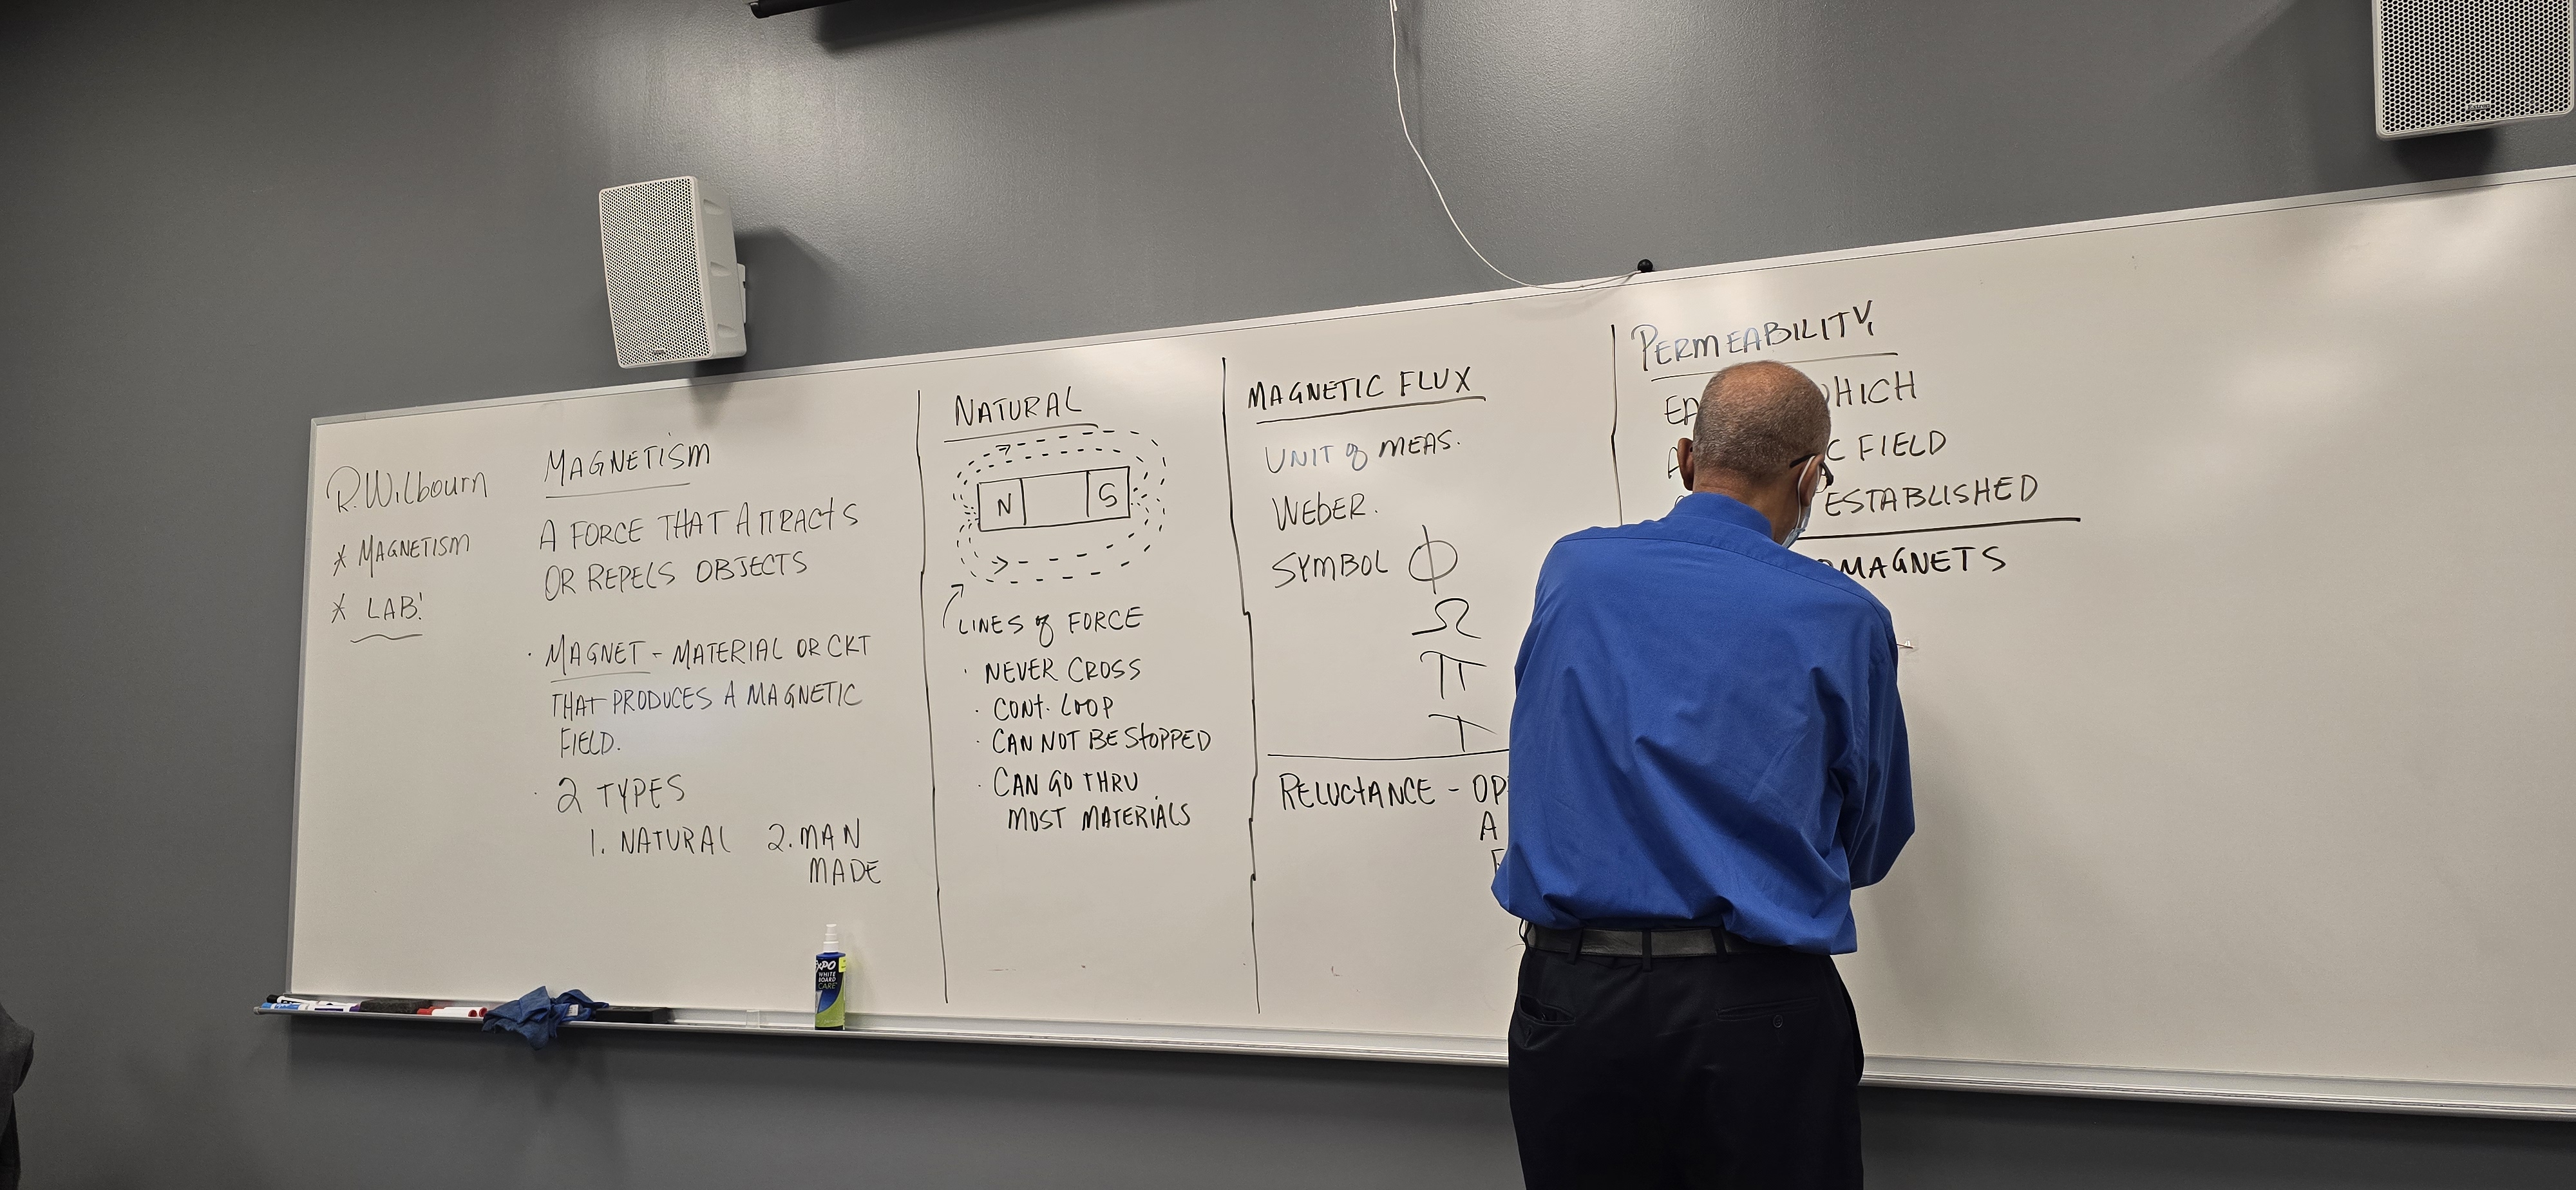 R. Wilbourn
* MAGNETISM
* LAB!
MAGNETISM
A FORCE THAT ATTRACTS
OR REPELS OBJECTS
· MAGNET - MATERIAL OR CKT
THAT PRODUCES A MAGNETIC
FIELD.
· 2 TYPES
1. NATURAL 2. MAN
MADE
NATURAL
N S
LINES of FORCE
· NEVER CROSS
· CONT. LOOP
· CAN NOT BE STOPPED
· CAN GO THRU
MOST MATERIALS
MAGNETIC FLUX
UNIT of MEAS.
WEBER.
SYMBOL Φ
Ω
π
T
RELUCTANCE - OP
A
PERMEABILITY
EA HICH
A C FIELD
ESTABLISHED
OMAGNETS
EXPO
WHITE
BOARD
CARE